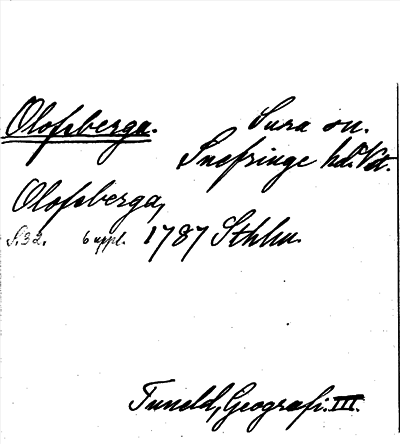 Olofsberga.
Sura sn.
Snefringe hd. Vstt.
Olofsberga,
S. 32. 6 uppl. 1787 Sthlm.
Tuneld, Geografi. III.